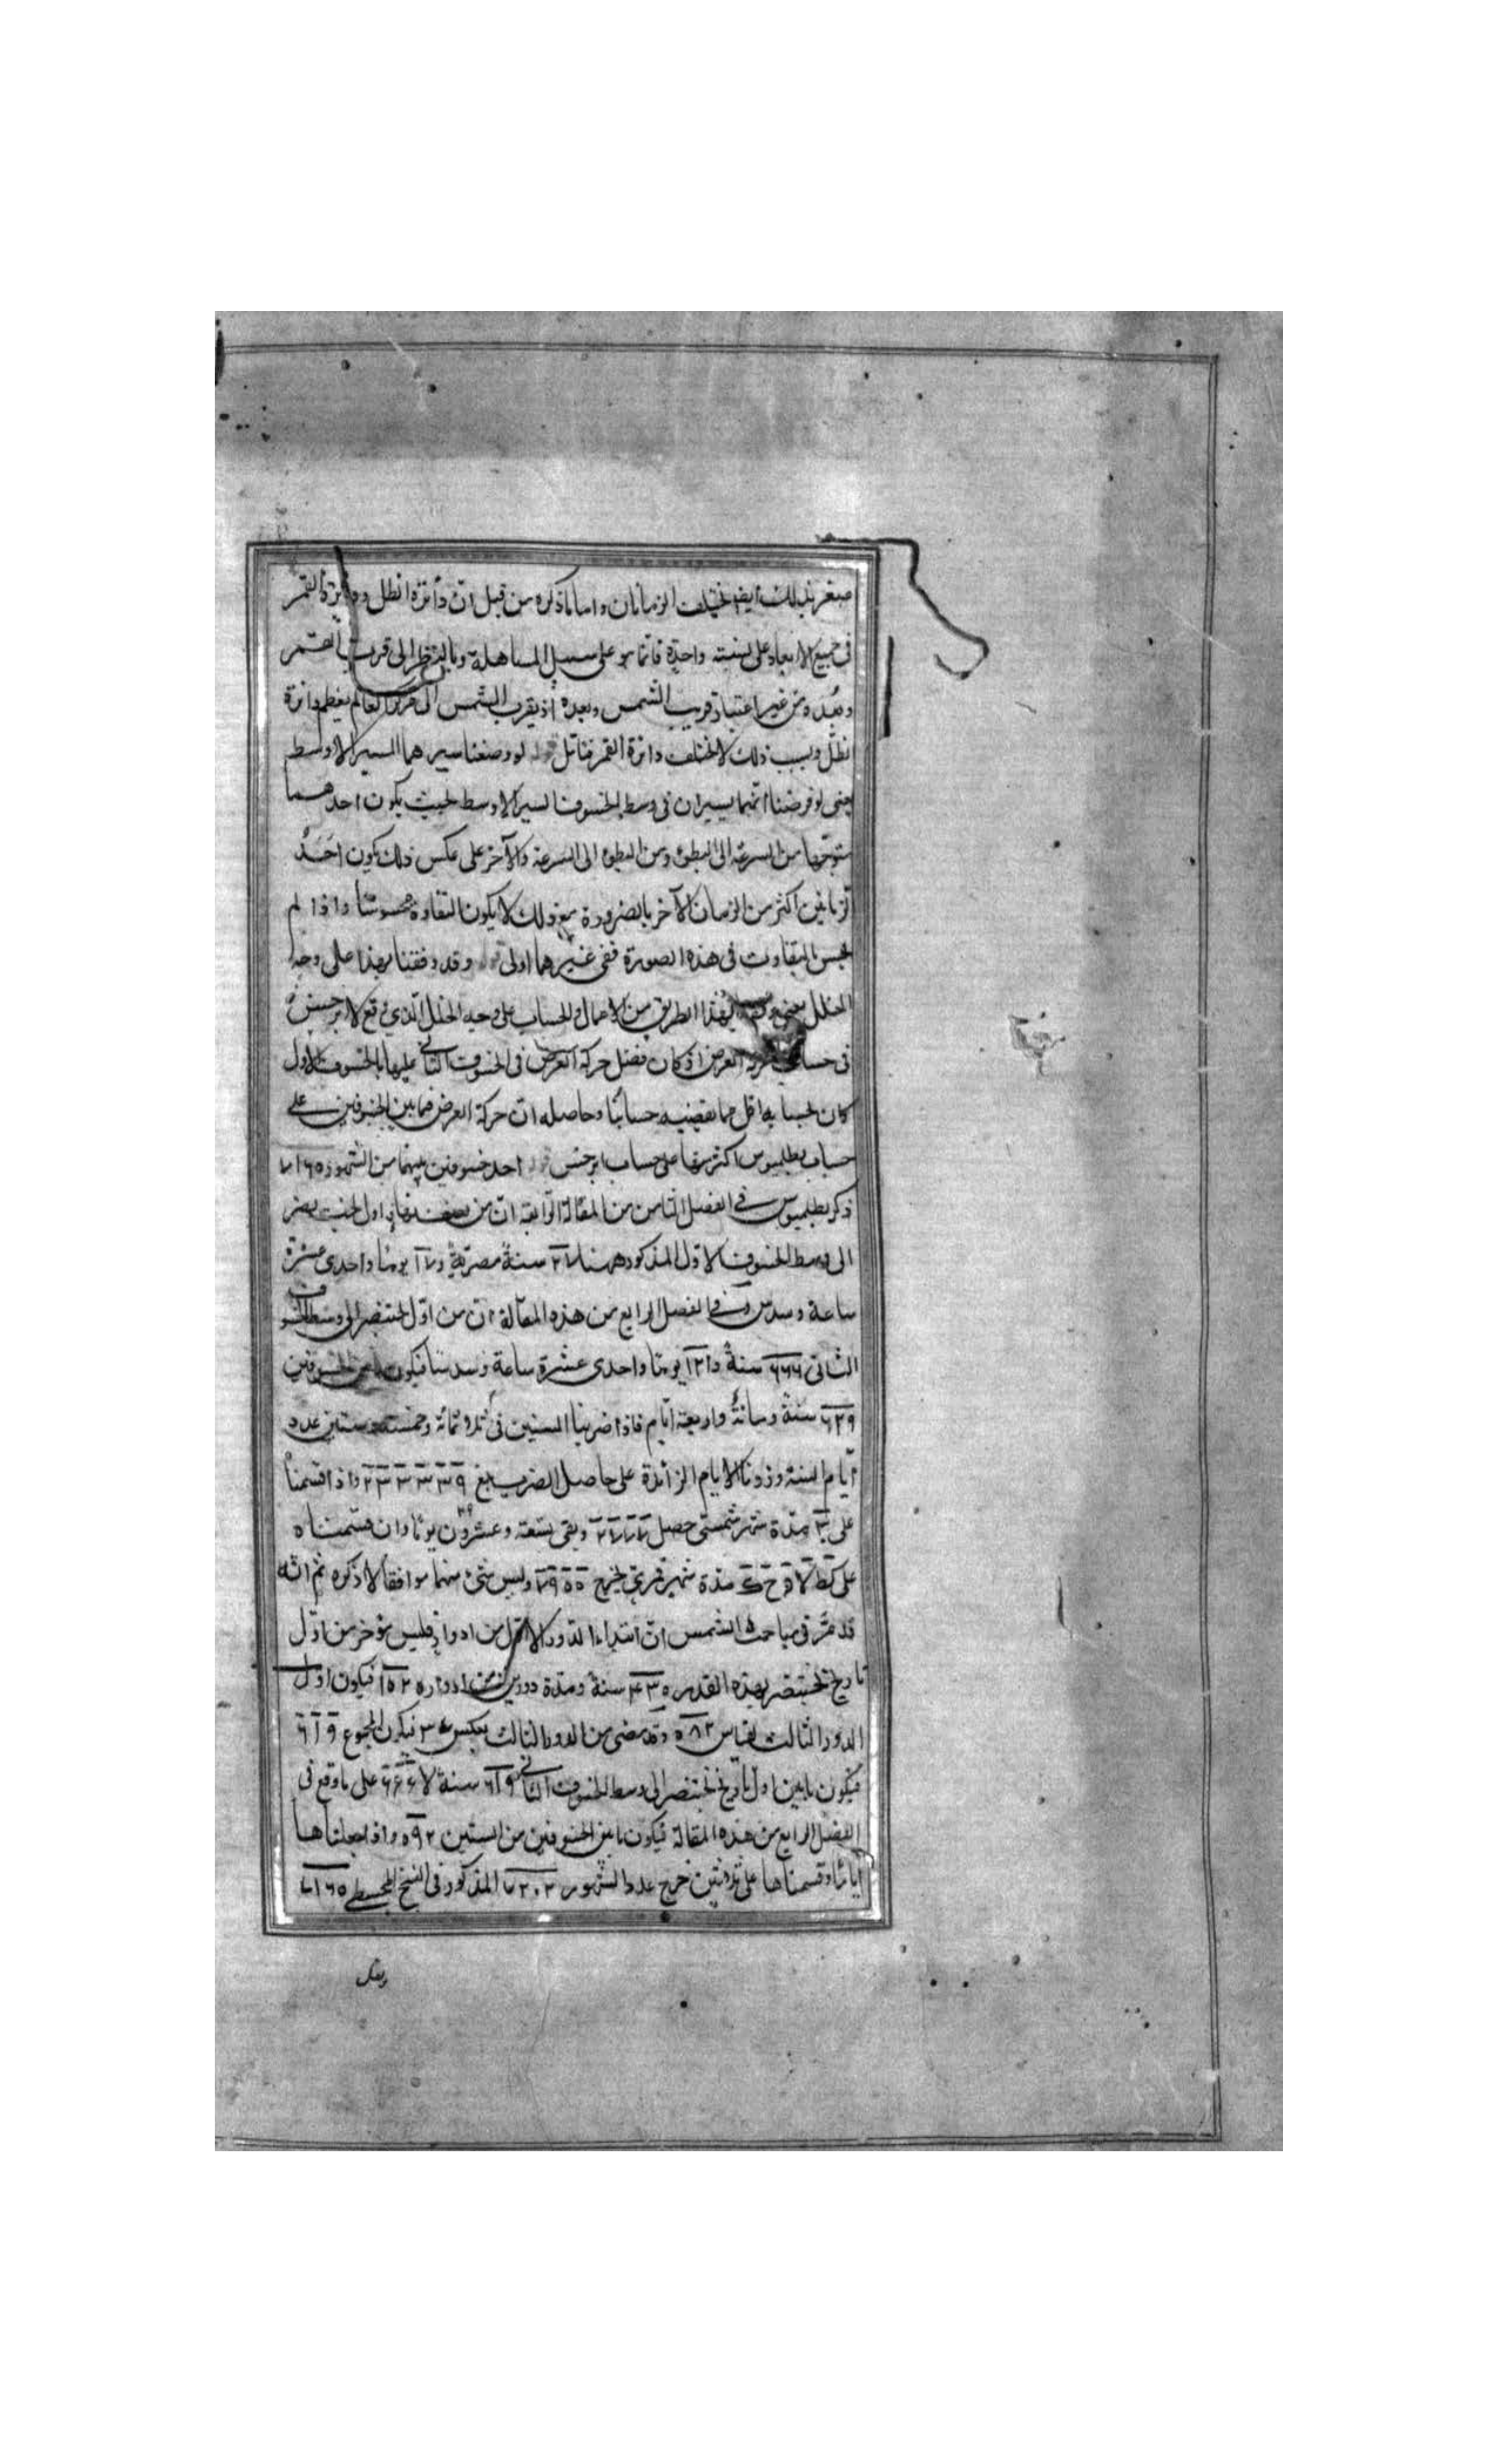 صغر بذلك ايضا يختلف الزمانان واما ما ذكره من قبل ان دائرة الظل ودائرة القمر
فى جميع الابعاد على نسبته واحدة فانما هو على سبيل المساهلة وبالنظر الى قرب القمر
وبعده من غير اعتبار قرب الشمس وبعده اذ بقرب الشمس الى مركز العالم يعظم دائرة
الظل وبسبب ذلك لا يختلف دائرة القمر فتامل لو وضعنا سيرهما المسير الاوسط
يعنى لو فرضنا انهما يسيران فى وسط الخسوف السير الاوسط بحيث يكون احدهما
متوجها من السرعة الى البطوء ومن البطوء الى السرعة والآخر على عكس ذلك يكون احد
الزمانين اكثر من الزمان الآخر بالضرورة مع ذلك لا يكون التفاوت محسوسا واذا لم
يحس التفاوت فى هذه الصورة ففى غيرهما اولى قوله وقد وقفنا بهذا على وجه
الخلل يعنى بهذا الطريق من الاعمال والحساب على وجه الخلل الذى وقع لابرخس
فى حساب العرض اذ كان فضل حركة العرض فى الخسوف الثانى عليها بالخسوف الاول
كان لحسابه اقل مما يقتضيه حسابنا وحاصله ان حركة العرض فيما بين الخسوفين على
حساب بطلميوس اكثر منها على حساب ابرخس قوله احد خسوفين بينهما من الشهور ٧١٦٥
ذكر بطلميوس فى الفصل الثامن من المقالة الرابعة ان من اول بختنصر
الى وسط الخسوف الاول المذكور ههنا ٢٧ سنة مصرية و ١٧ يوما واحدى عشرة
ساعة وسدس وفى الفصل الرابع من هذه المقالة ان من اول بختنصر الى وسط الخسوف
الثانى ٦٦٦ سنة و ١٢١ يوما واحدى عشرة ساعة وسدسا فيكون ما بين الخسوفين
٦٣٩ سنة ومائة واربعة ايام فاذا ضربنا السنين فى ثلاثمائة وخمسة وستين عدد
ايام السنة وزدنا الايام الزائدة على حاصل الضرب بلغ ٢٣٣٣٣٩ واذا قسمناه
على ٣٠ مدة شهر شمسى حصل ٧٧٧٧ وبقى تسعة وعشرون يوما وان قسمناه
على كط لا مدة شهر قمرى يخرج وليس شئ منهما موافقا لا ذكره ثم انه
قد مر فى مباحث الشمس ان ابتداء الدور الاول من ادوار فليس مؤخر من اول
تاريخ بختنصر بهذه القدر ٤٣٠ سنة ومدة دورين من ادواره ١٥٢ فيكون اول
الدور الثالث لفاس ٥٨٢ وقد مضى من الدور الثالث ٣٧ فيكون المجموع ٦١٩
فيكون ما بين اول تاريخ بختنصر الى وسط الخسوف الثانى ٦١٩ سنة لا ٦٦٦ على ما وقع فى
الفصل الرابع من هذه المقالة فيكون ما بين الخسوفين من السنين ٥٩٢ واذا جعلناها
اياما وقسمناها على ثلاثين خرج عدد الشهور ٧٢٠٢ المذكور فى نسخ المجسطى ٧١٦٥